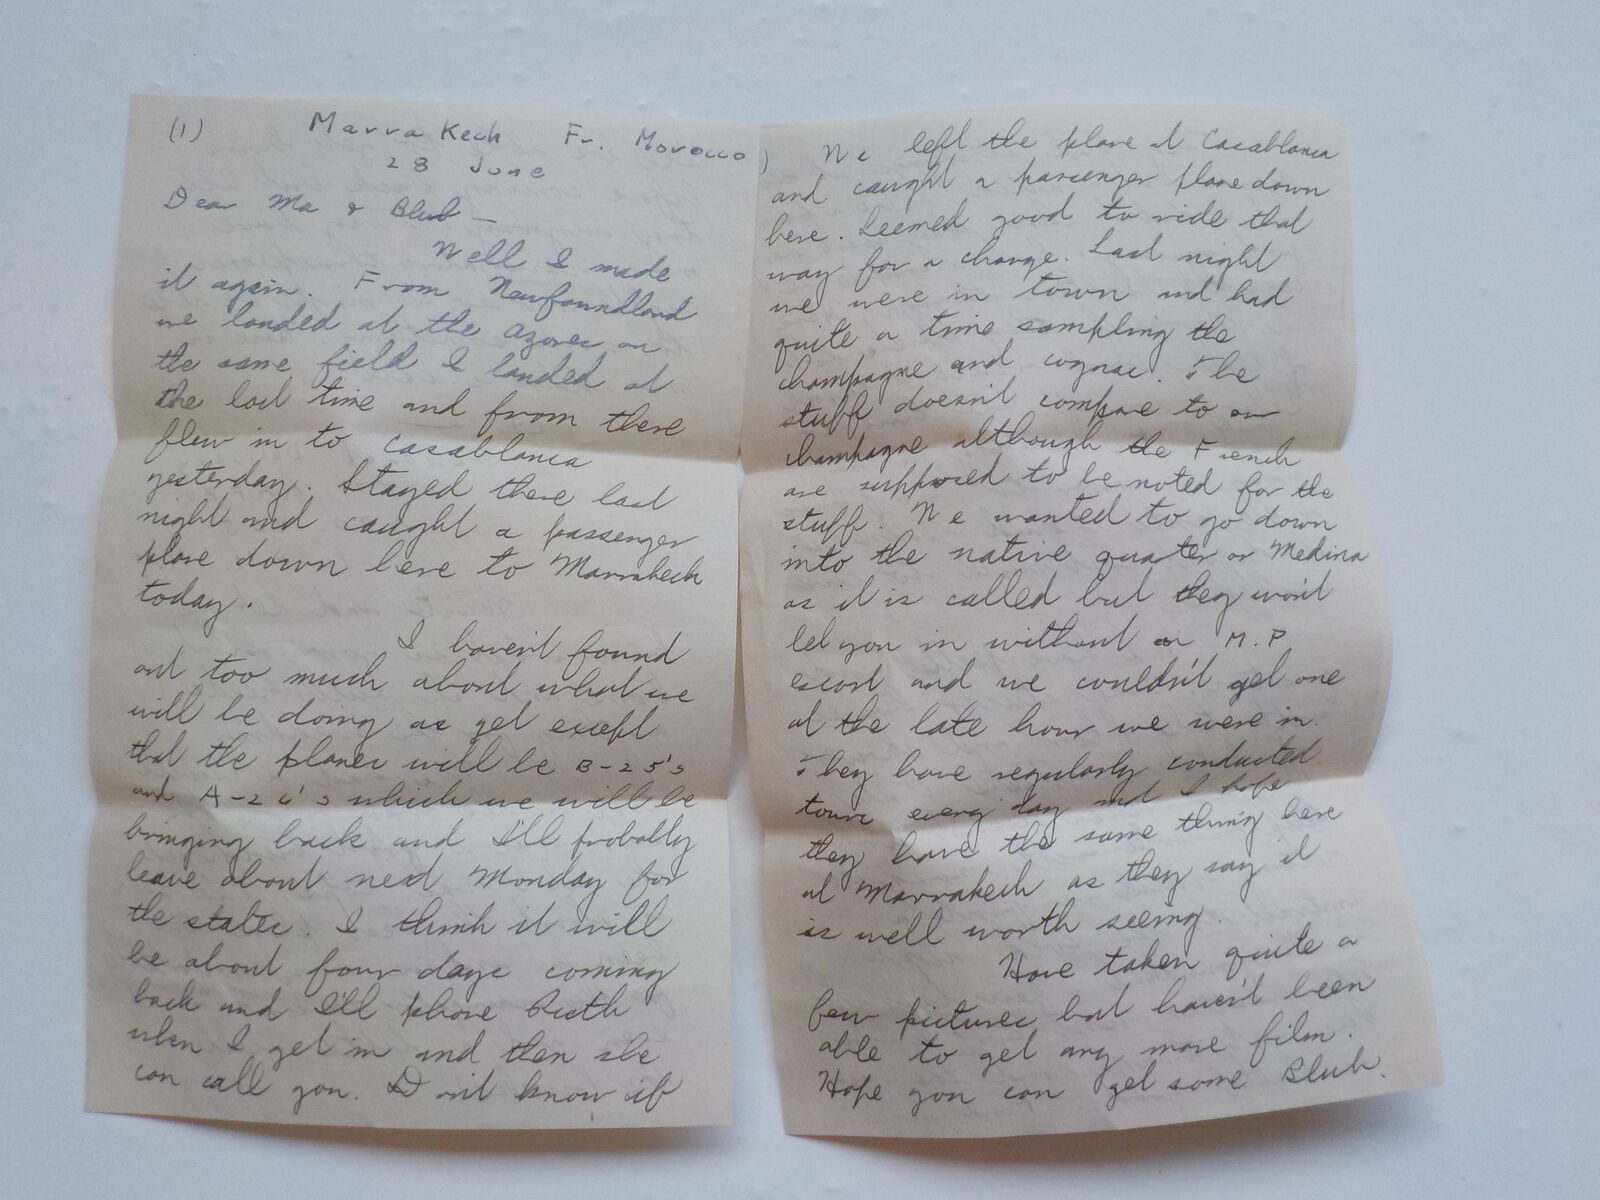 (1) Marra Kech Fr. Morocco
28 June
Dear Ma & Blub —
Well I made
it again. From Newfoundland
we landed at the Azores on
the same field I landed at
the last time and from there
flew in to Casablanca
yesterday. Stayed there last
night and caught a passenger
plane down here to Marrakech
today.
I haven't found
out too much about what we
will be doing as yet except
that the planes will be B-25's
and A-26's which we will be
bringing back and I'll probably
leave about next Monday for
the states. I think it will
be about four days coming
back and I'll phone Ruth
when I get in and then she
can call you. Don't know if
) We left the plane at Casablanca
and caught a passenger plane down
here. Seemed good to ride that
way for a change. Last night
we were in town and had
quite a time sampling the
champagne and cognac. The
stuff doesn't compare to our
champagne although the French
are supposed to be noted for the
stuff. We wanted to go down
into the native quarter or Medina
as it is called but they won't
let you in without an M.P
escort and we couldn't get one
at the late hour we were in.
They have regularly conducted
tours every day and I hope
they have the same thing here
at Marrakech as they say it
is well worth seeing.
Have taken quite a
few pictures but haven't been
able to get any more film.
Hope you can get some Blub.